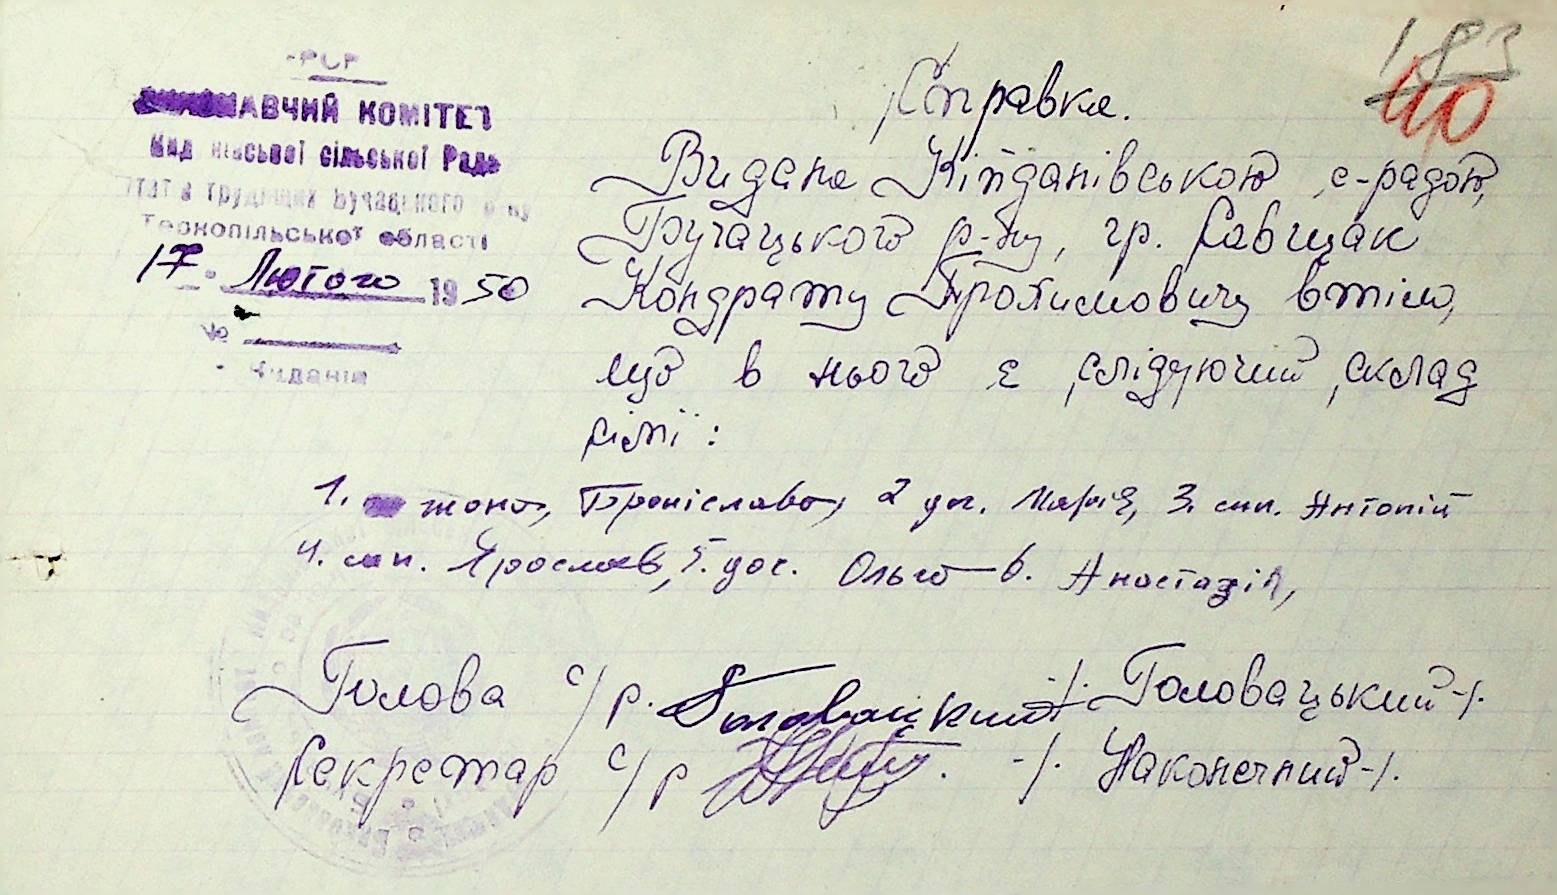 183
40
РСР
АВЧИЙ КОМІТЕТ
сільської Ради
трудящих Бучацького
Тернопільської області
17 Лютого 1950
№
Справка.
Видана Кійданівською с-радою,
Бучацького р-ну, гр. Савіцак
Кондрату Трохимовичу втім,
що в нього є слідуючий склад
сімї:
1. жона, Броніслава, 2 доч. Марія, 3. син. Антоній
4. син. Ярослав, 5. доч. Ольга 6. Анастазія,
Голова с/р. Головацький -/. Головацький -/.
Секретар с/р -/. Наконечний -/.